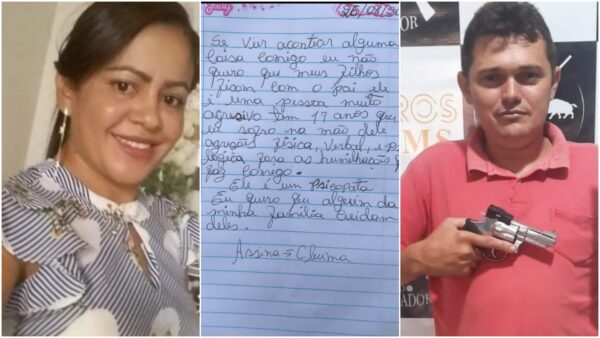 26/08/2
Se vier acontecer alguma
coisa comigo eu não
quero que meus filhos
ficam com o pai ele
é uma pessoa muito
agresivo tem 17 anos que
eu sofro na mão dele
agreção fisica, verbal, e
lógica fora as humilhação
faz comigo.
Ele é um psicopata
Eu quero que alguem da
minha familia cuidam
deles.
Assina → Churma
ROS
MS
ADOR
CADOR